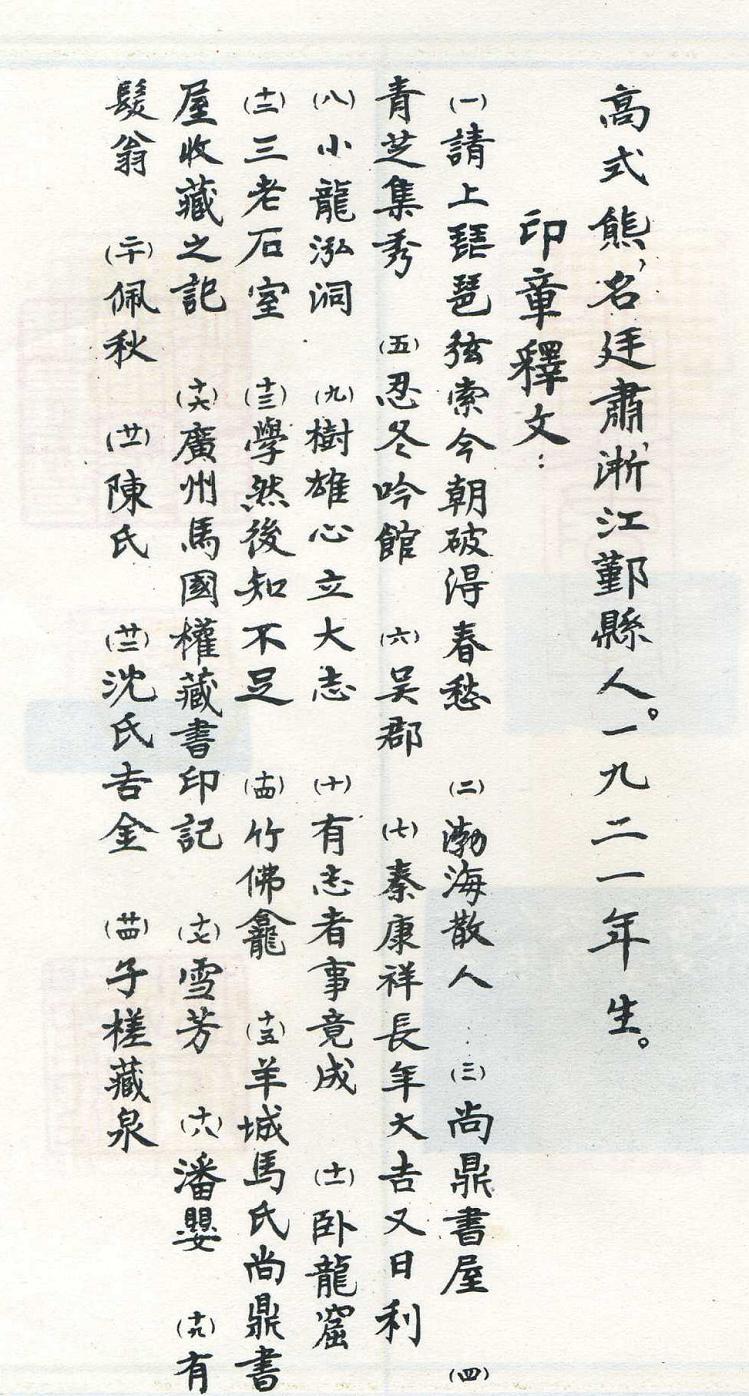 高式熊，名廷肅，浙江鄞縣人。一九二一年生。
印章釋文：
(一)請上琵琶弦索今朝破得春愁 (二)渤海散人 (三)尚鼎書屋 (四)
青芝集秀 (五)忍冬吟館 (六)吴郡 (七)秦康祥長年大吉又日利
(八)小龍泓洞 (九)樹雄心立大志 (十)有志者事竟成 (十一)卧龍窟
(十二)三老石室 (十三)學然後知不足 (十四)竹佛龕 (十五)羊城馬氏尚鼎書
屋收藏之記 (十六)廣州馬國權藏書印記 (十七)雪芳 (十八)潘嬰 (十九)有
髮翁 (二十)佩秋 (廿一)陳氏 (廿三)沈氏吉金 (廿四)子槎藏泉